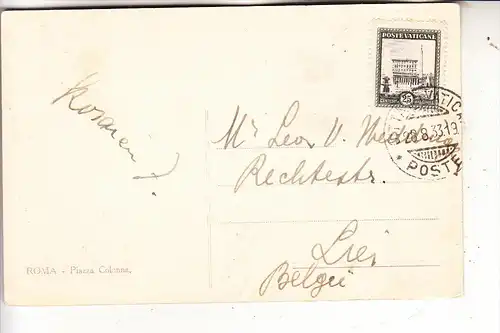 POSTE VATICANE
25
VATIC
8.33.19
POSTE
Mr Leon V.
Rechtestr.
Lier
België
ROMA - Piazza Colonna.